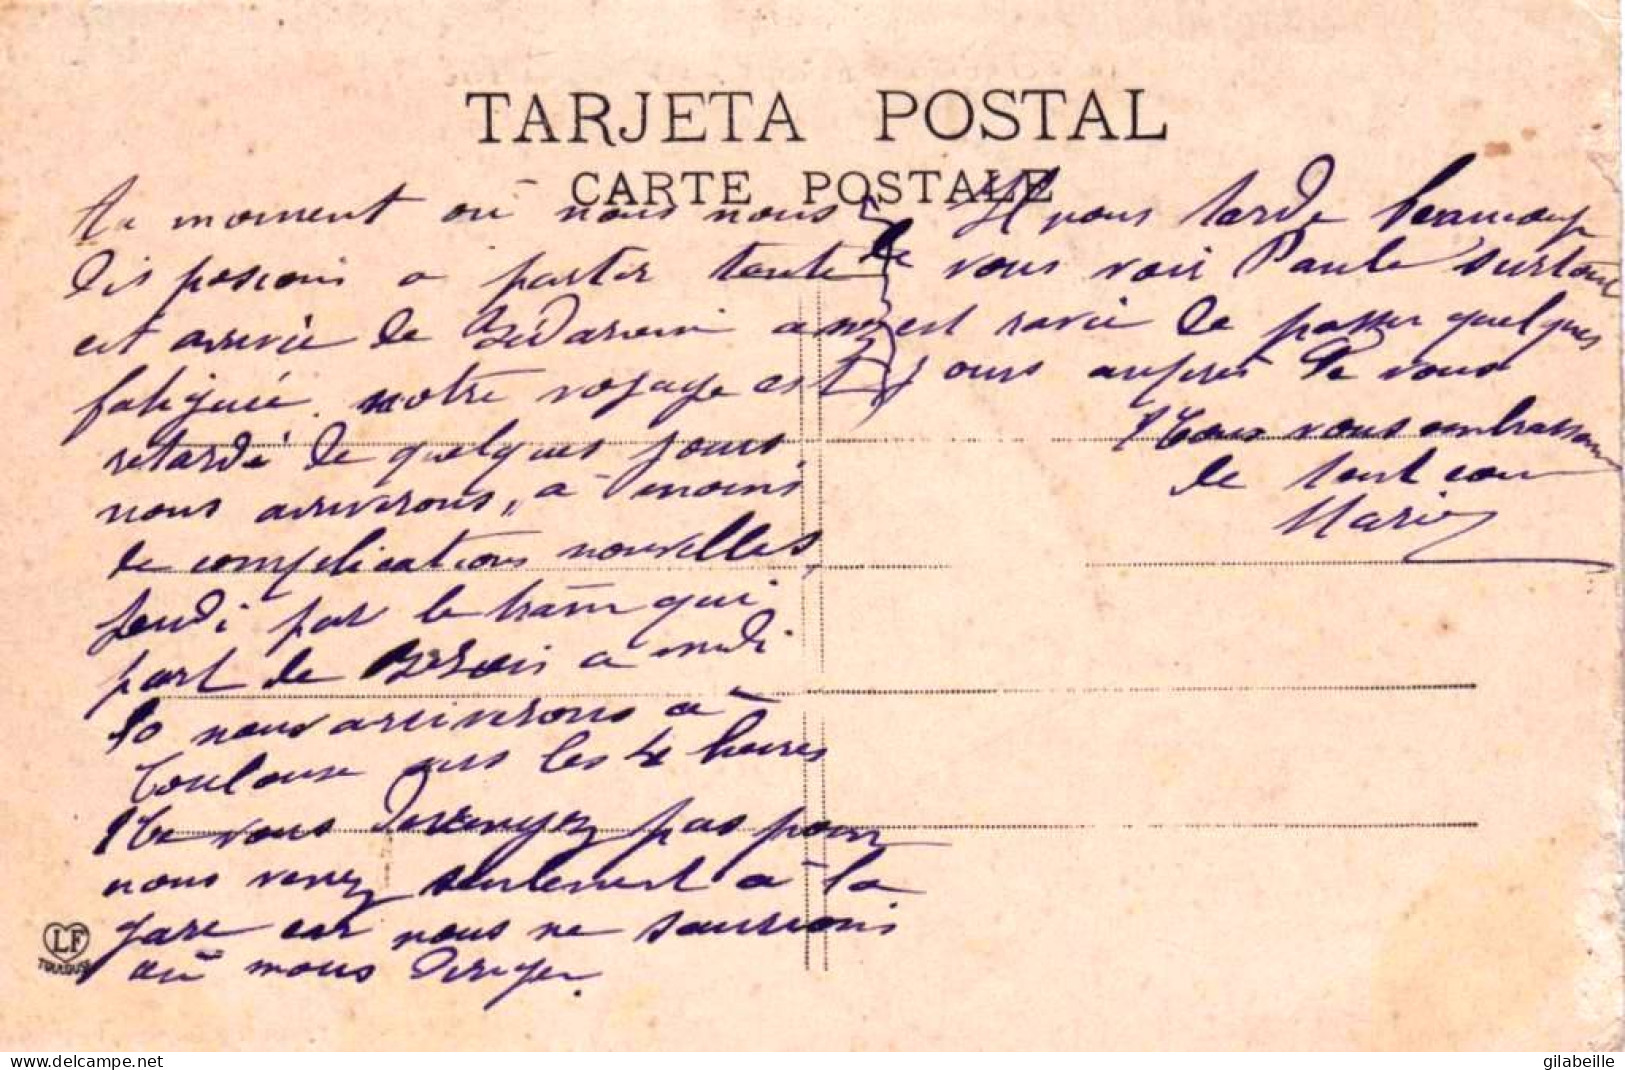 TARJETA POSTAL
CARTE POSTALE
moment ou nous nous
disposions a partir tante
est arrivée de Bédarieux assez
fatiguée. notre voyage est
retardé de quelques jours.
nous arriverons, à moins
de complications nouvelles,
jeudi par le train qui
part de a midi
50 nous arriverons à
Toulouse vers les 4 heures
Ne vous pas pour
nous venez seulement à la
gare car nous ne saurions
où nous diriger.
Il nous tarde beaucoup
de vous voir Paule surtout
est ravie de passer quelques
jours auprès de vous
Tous vous embrassons
de tout cœur
Marie
LF
TOULOUSE
gilabeille
delcampe.net